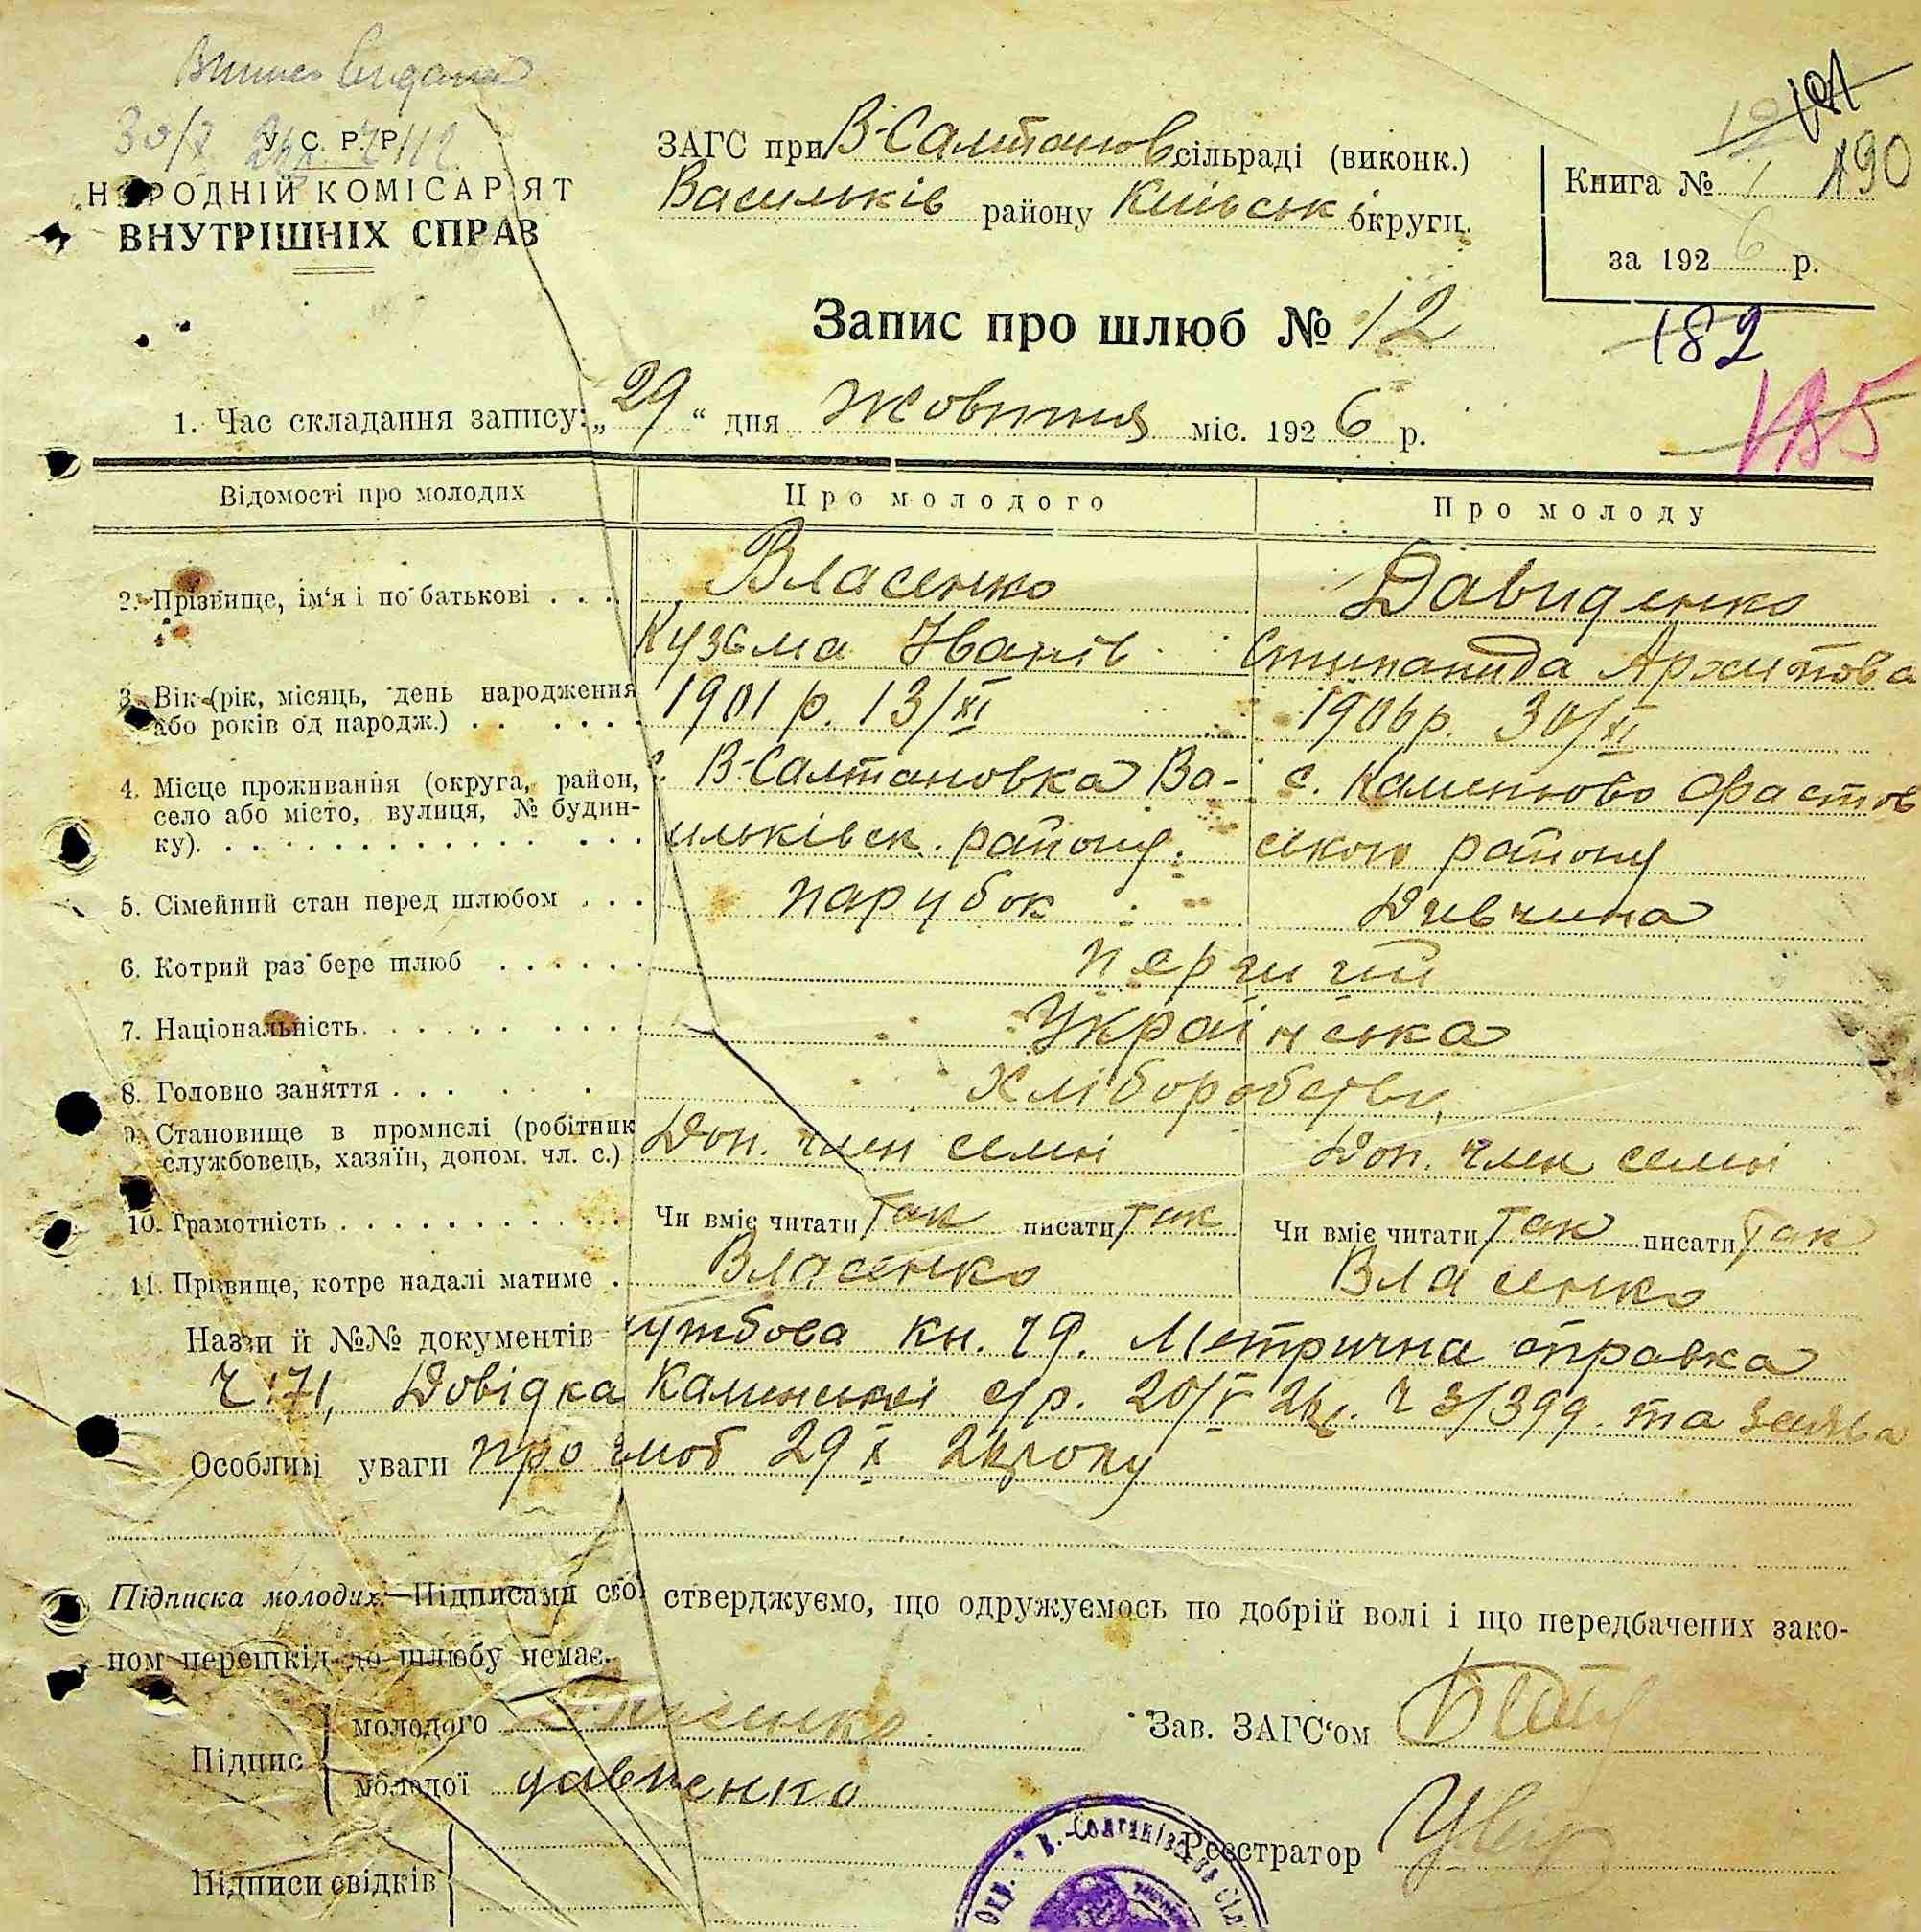 Випис видана
30/X 26р. № 112
У. С. Р. Р.
НАРОДНІЙ КОМІСАР'ЯТ
ВНУТРІШНІХ СПРАВ
ЗАГС при В-Салтанов сільраді (виконк.)
Васильків району Київськ округи.
101
190
Книга № 1
за 1926 р.
182
185
Запис про шлюб № 12
1. Час складання запису: „29“ дня жовтня міс. 1926 р.
Відомості про молодих Про молодого Про молоду
2. Прізвище, ім'я і по батькові . . . Власенко Давиденко
Кузьма Іванів Степанида Архипова
3. Вік (рік, місяць, день народження або років од народж.) . . . 1901 р. 13/XI 1906 р. 30/XI
4. Місце проживання (округа, район, с. В-Салтановка Ва- с. Каменьово Фастов
село або місто, вулиця, № будин- сильківск. району. ського району
ку). . . .
5. Сімейний стан перед шлюбом . . . парубок Дивчина
6. Котрий раз бере шлюб . . . . . . перший
7. Національність. . . . . . . Українська
8. Головне заняття . . . . . Хліборобство
9. Становище в промислі (робітник Доп. член семьі Доп. член семьі
службовець, хазяїн, допом. чл. с.)
10. Грамотність . . . . . . . . . . . Чи вміє читати Так писати Так Чи вміє читати Так писати Так
11. Прізвище, котре надалі матиме . Власенко Власенко
Назви й №№ документів кн. 79. Метрична справка
ч 171, Довідка Каменської с/р. 20/V 26р. ч 3/399. та заява
Особливі уваги про шлюб 29 X 26 року
Підписка молодих.—Підписами свої стверджуємо, що одружуємось по добрій волі і що передбачених зако-
ном перешкід до шлюбу немає.
Підпис
молодого Власенко
Зав. ЗАГС'ом
молодої давиенко
Реєстратор
Підписи свідків